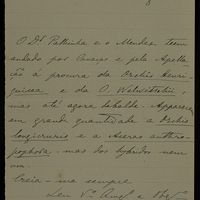 O Dr. Palhinha e o Mendes teem
andado por Cascaes e pela Apella-
ção á procura da Orchis Henri-
quesea e da O. Welwitschii,
mas até agora debalde. Apparece
em grande quantidade a Orchis
longicruris e a Aceras anthro-
pophora, mas dos hybridos nem
um.
Creia-me sempre